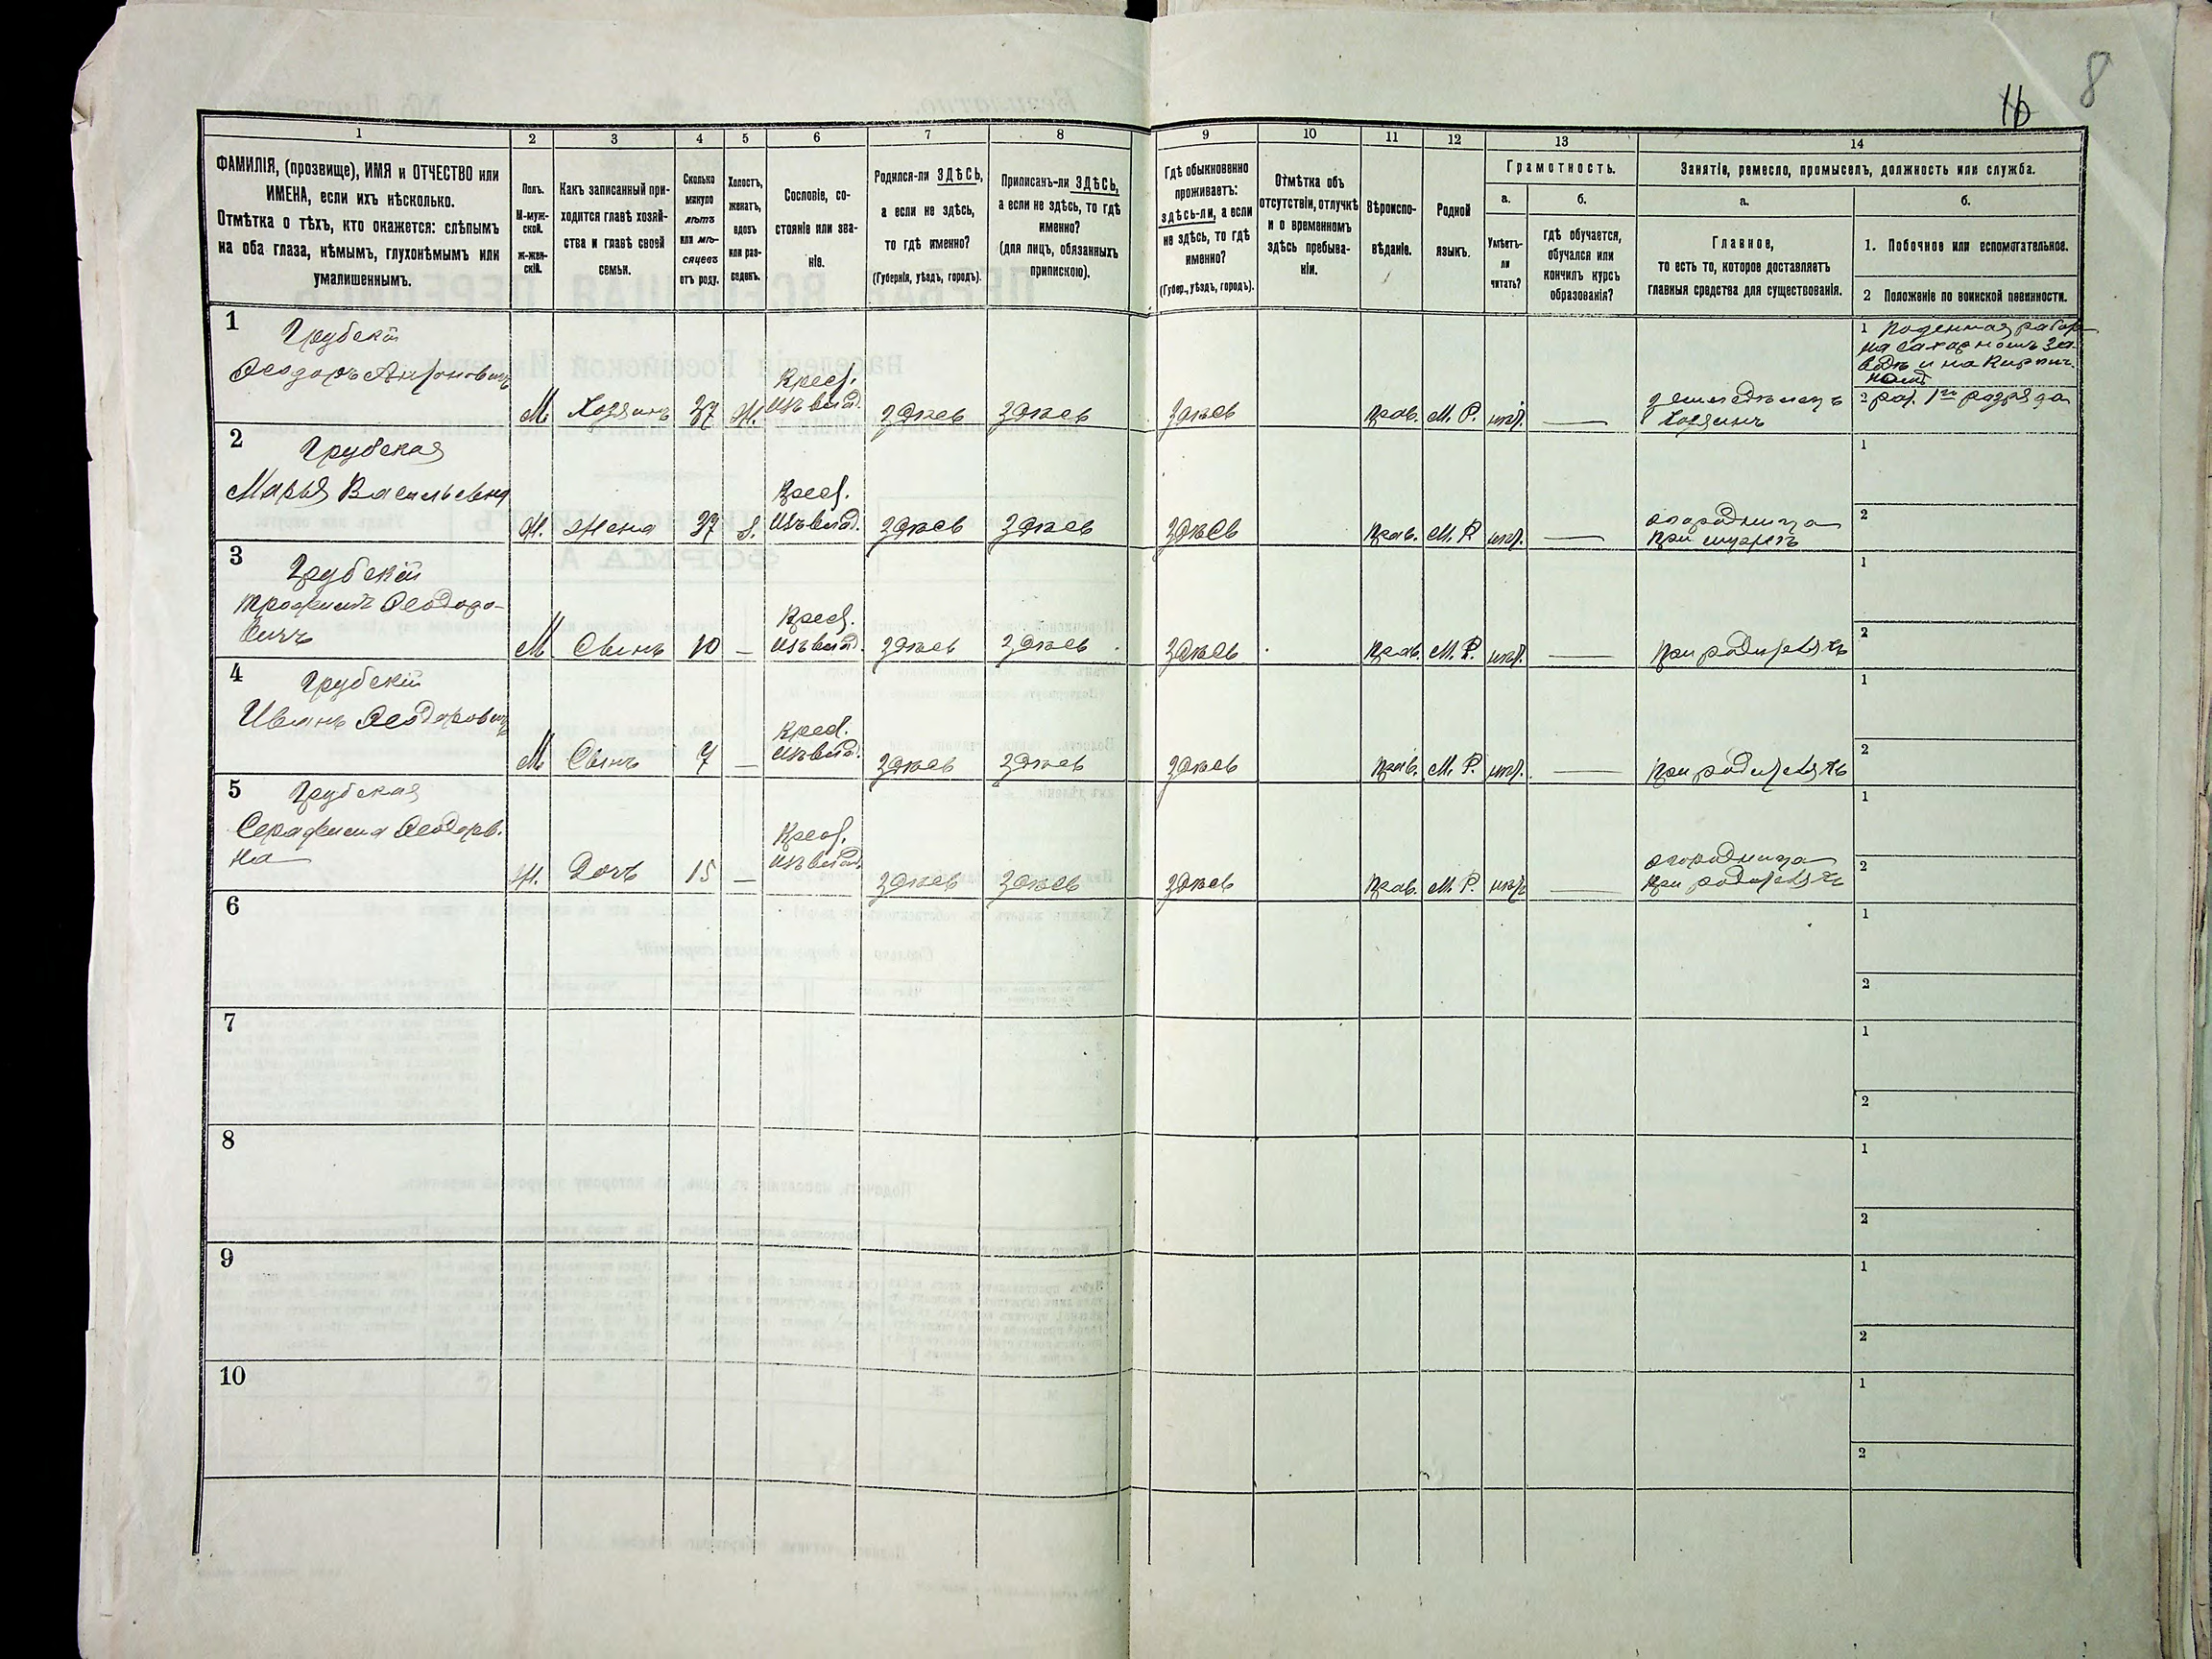 8
16
1
2
3
4
5
6
7
8
9
10
11
12
13
14
ФАМИЛІЯ, (прозвище), ИМЯ и ОТЧЕСТВО или
ИМЕНА, если ихъ нѣсколько.
Отмѣтка о тѣхъ, кто окажется: слѣпымъ
на оба глаза, нѣмымъ, глухонѣмымъ или
умалишеннымъ.
Полъ.
М-муж-
ской.
ж-жен-
скій.
Какъ записанный при-
ходится главѣ хозяй-
ства и главѣ своей
семьи.
Сколько
минуло
лѣтъ
или мѣ-
сяцевъ
отъ роду.
Холостъ,
женатъ,
вдовъ
или раз-
веденъ.
Сословіе, со-
стояніе или зва-
ніе.
Родился-ли ЗДѢСЬ,
а если не здѣсь,
то гдѣ именно?
(Губернія, уѣздъ, городъ).
Приписанъ-ли ЗДѢСЬ,
а если не здѣсь, то гдѣ
именно?
(для лицъ, обязанныхъ
припискою).
Гдѣ обыкновенно
проживаетъ:
здѣсь-ли, а если
не здѣсь, то гдѣ
именно?
(Губер., уѣздъ, городъ).
Отмѣтка объ
отсутствіи, отлучкѣ
и о временномъ
здѣсь пребыва-
ніи.
Вѣроиспо-
вѣданіе.
Родной
языкъ.
Грамотность.
а.
Умѣетъ-
ли
читать?
б.
гдѣ обучается,
обучался или
кончилъ курсъ
образованія?
Занятіе, ремесло, промыселъ, должность или служба.
а.
Главное,
то есть то, которое доставляетъ
главныя средства для существованія.
б.
1. Побочное или вспомогательное.
2 Положеніе по воинской повинности.
1 Грубскій
Ѳеодоръ Антоновичъ
М Хозяинъ 37 Ж.
Крест.
изъ влад.
здѣсь здѣсь здѣсь прав. М. Р. нѣт. —
земледѣлецъ
хозяинъ
1 Поденная работ.
на сахарномъ за-
водѣ и на кирпич-
номъ
2 рат. 1го разряда
2 Грубская
Марья Васильевна
Ж. Жена 37 З.
Крест.
изъ влад.
здѣсь здѣсь здѣсь прав. М. Р. нѣт. —
огородница
при мужѣ
1
2
3 Грубскій
Трофимъ Ѳеодоро-
вичъ
М Сынъ 10 —
Крест.
изъ влад.
здѣсь здѣсь здѣсь прав. М. Р. нѣт. —
при родителяхъ
1
2
4 Грубскій
Иванъ Ѳеодоровичъ
М Сынъ 7 —
Крест.
изъ влад.
здѣсь здѣсь здѣсь прав. М. Р. нѣт. —
при родителяхъ
1
2
5 Грубская
Серафима Ѳеодоров-
на
Ж. Дочь 15 —
Крест.
изъ влад.
здѣсь здѣсь здѣсь прав. М. Р. нѣт —
огородница
при родителяхъ
1
2
6
1
2
7
1
2
8
1
2
9
1
2
10
1
2